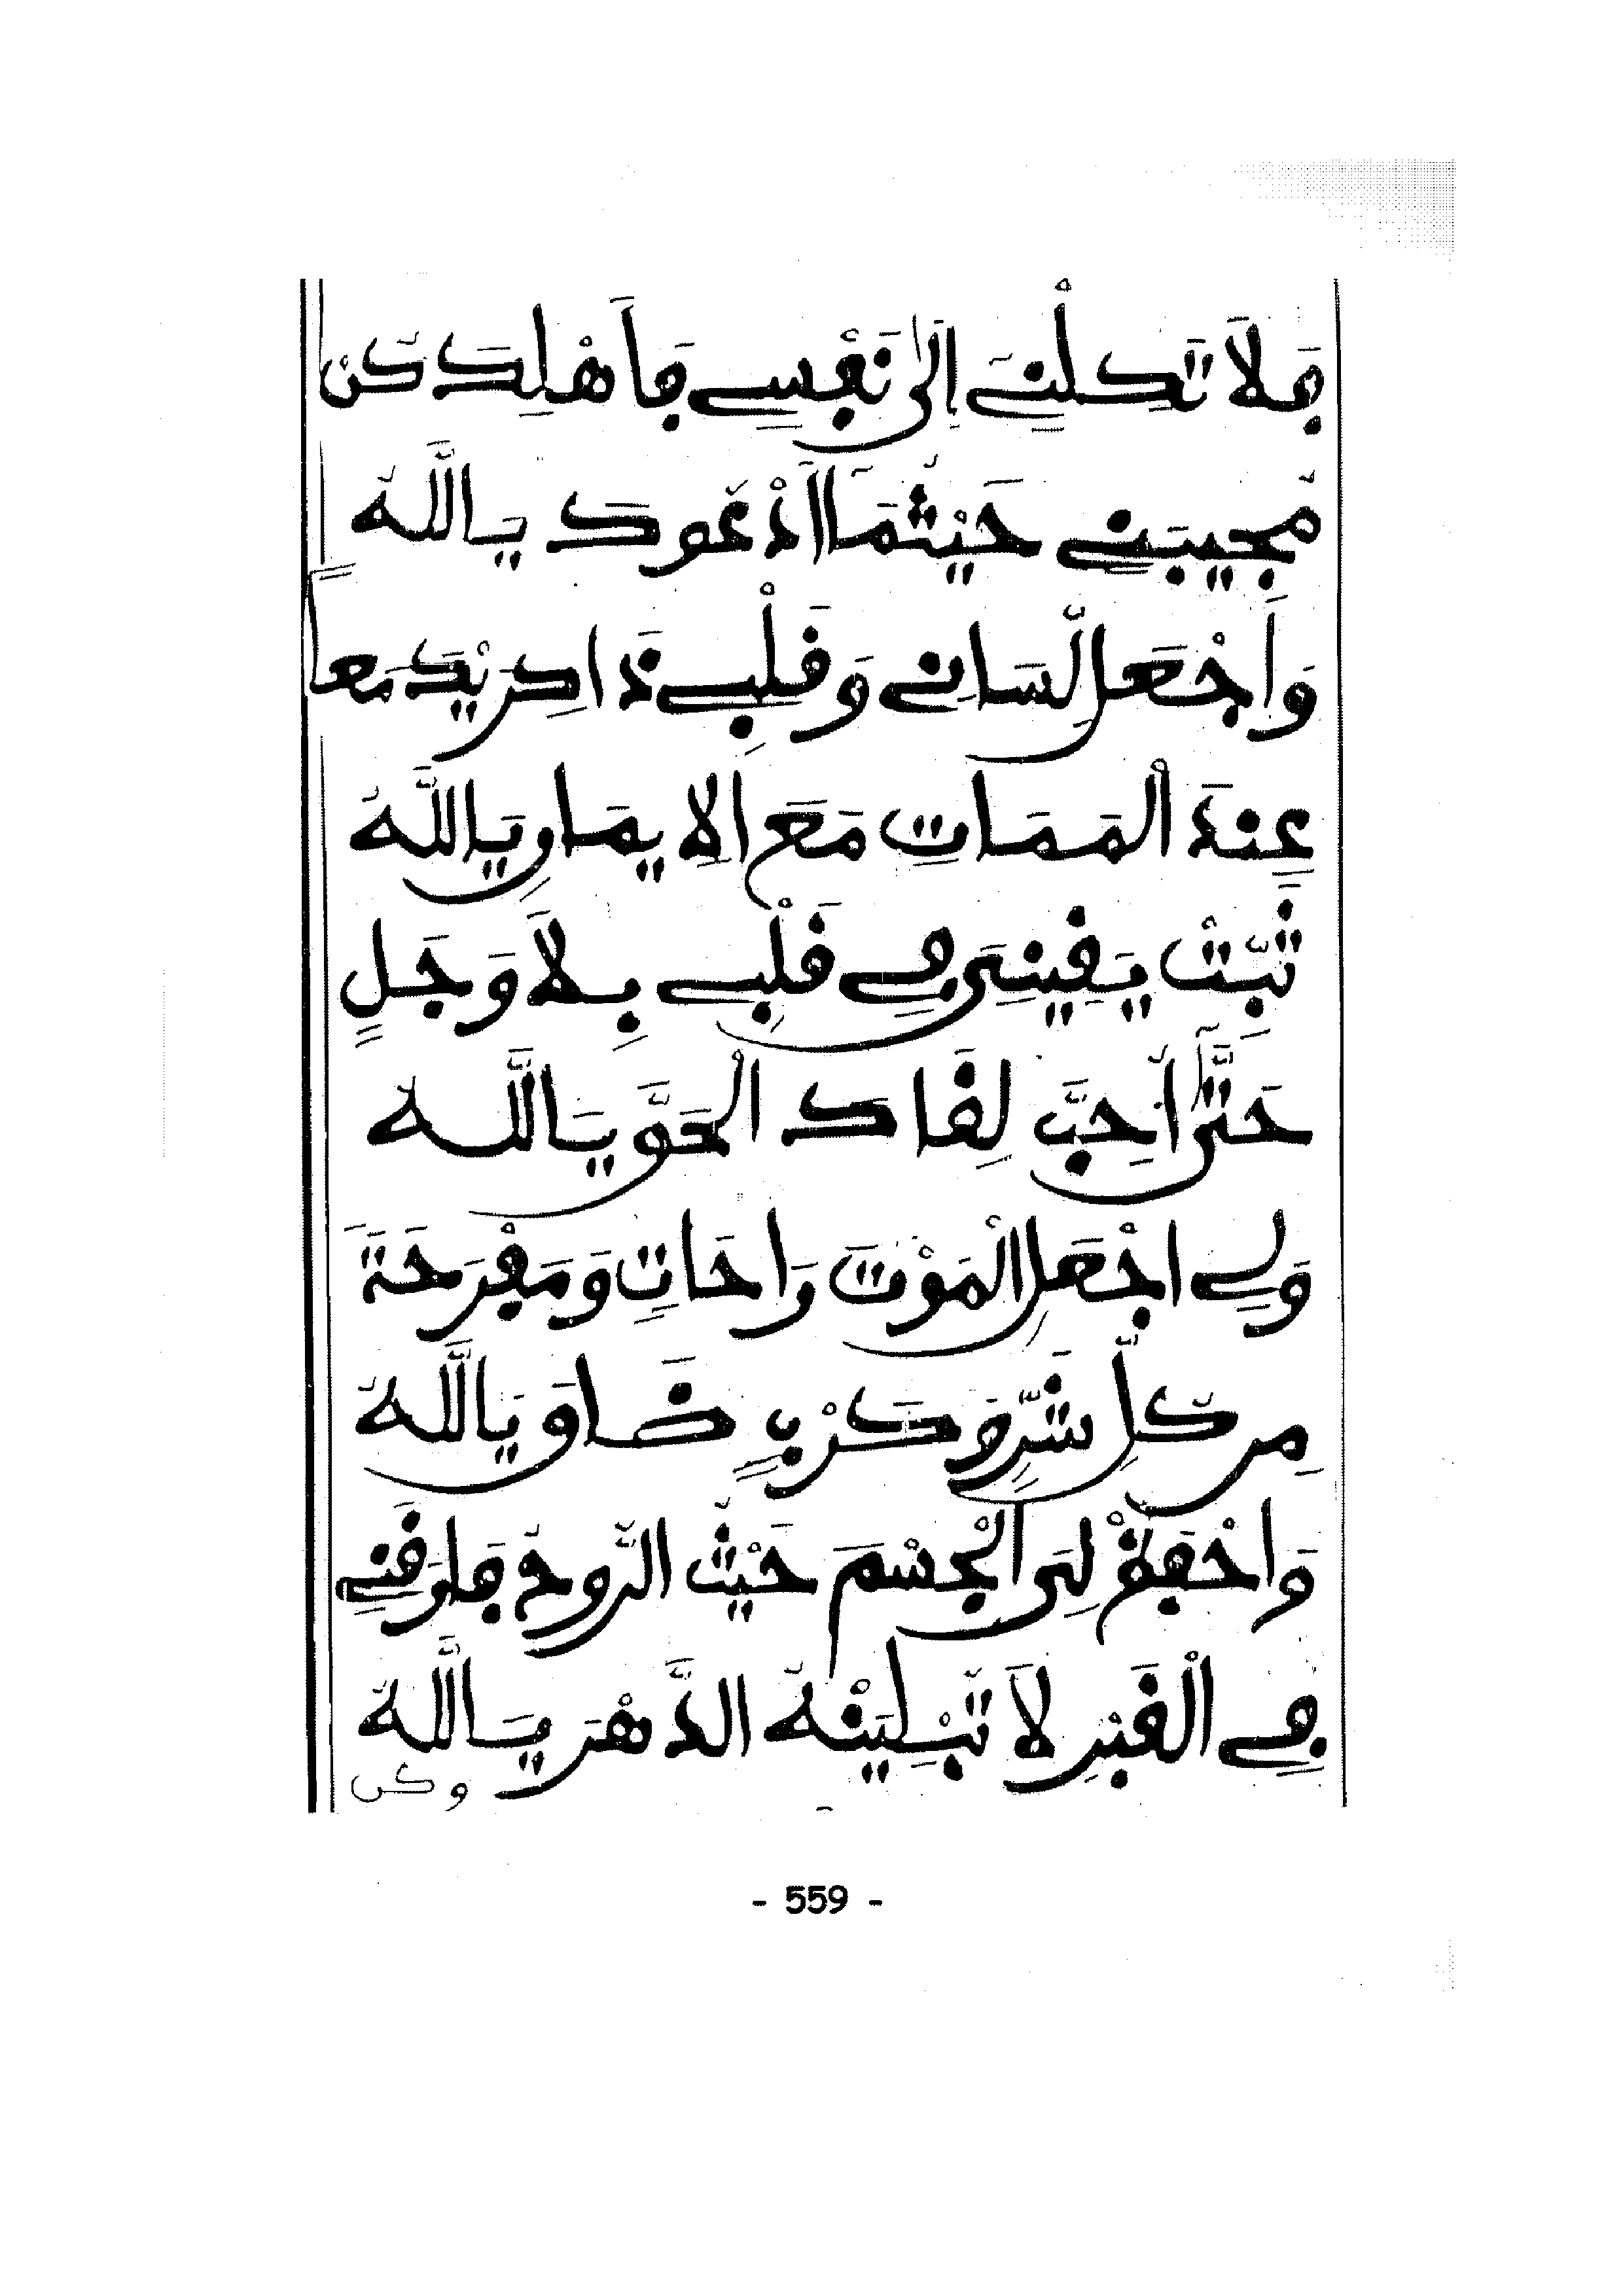 فَلَا تَكِلْنِے إِلَى نَفْسِے فَأَهْلِكَ كُنْ
مُجِيبَنِے حَيْثُمَا اَدْعُوكَ يَااللَّهُ
وَاَجْعَل لِّسَانِے وَقَلْبِے ذَاكِرَيْكَ مَعاً
عِنْدَ اَلْمَمَاتِ مَعَ اَلِايمَانِ يَااللَّهُ
ثَبِّتْ يَقِينِىَ فِے قَلْبِے بِلَا وَجَلٍ
حَتَّى اُحِبَّ لِقَاكَ الْحَقَّ يَااللَّهُ
وَلِے اجْعَلِ الْمَوْتَ رَاحَاتٍ وَمَفْرَحَةً
مِن كُلِّ شَرٍّ وَكَرْبٍ ضَاقَ يَااللَّهُ
وَاحْفَظْ لِىَ الْجِسْمَ حَيْثُ الرُّوحُ فَارَقَنِے
فِے الْقَبْرِ لَا تُبْلِيَنْهُ الدَّهْرَ يَااللَّهُ
وكن
- 559 -